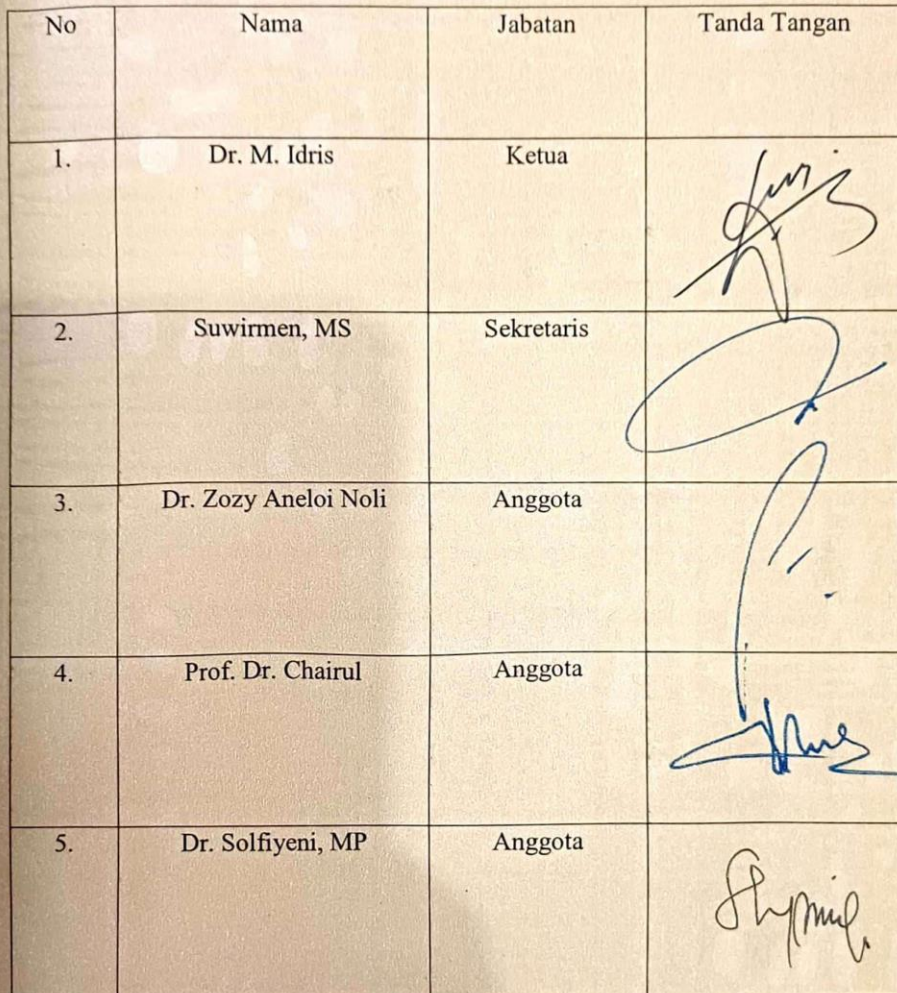 No Nama Jabatan Tanda Tangan
1. Dr. M. Idris Ketua
2. Suwirmen, MS Sekretaris
3. Dr. Zozy Aneloi Noli Anggota
4. Prof. Dr. Chairul Anggota
5. Dr. Solfiyeni, MP Anggota